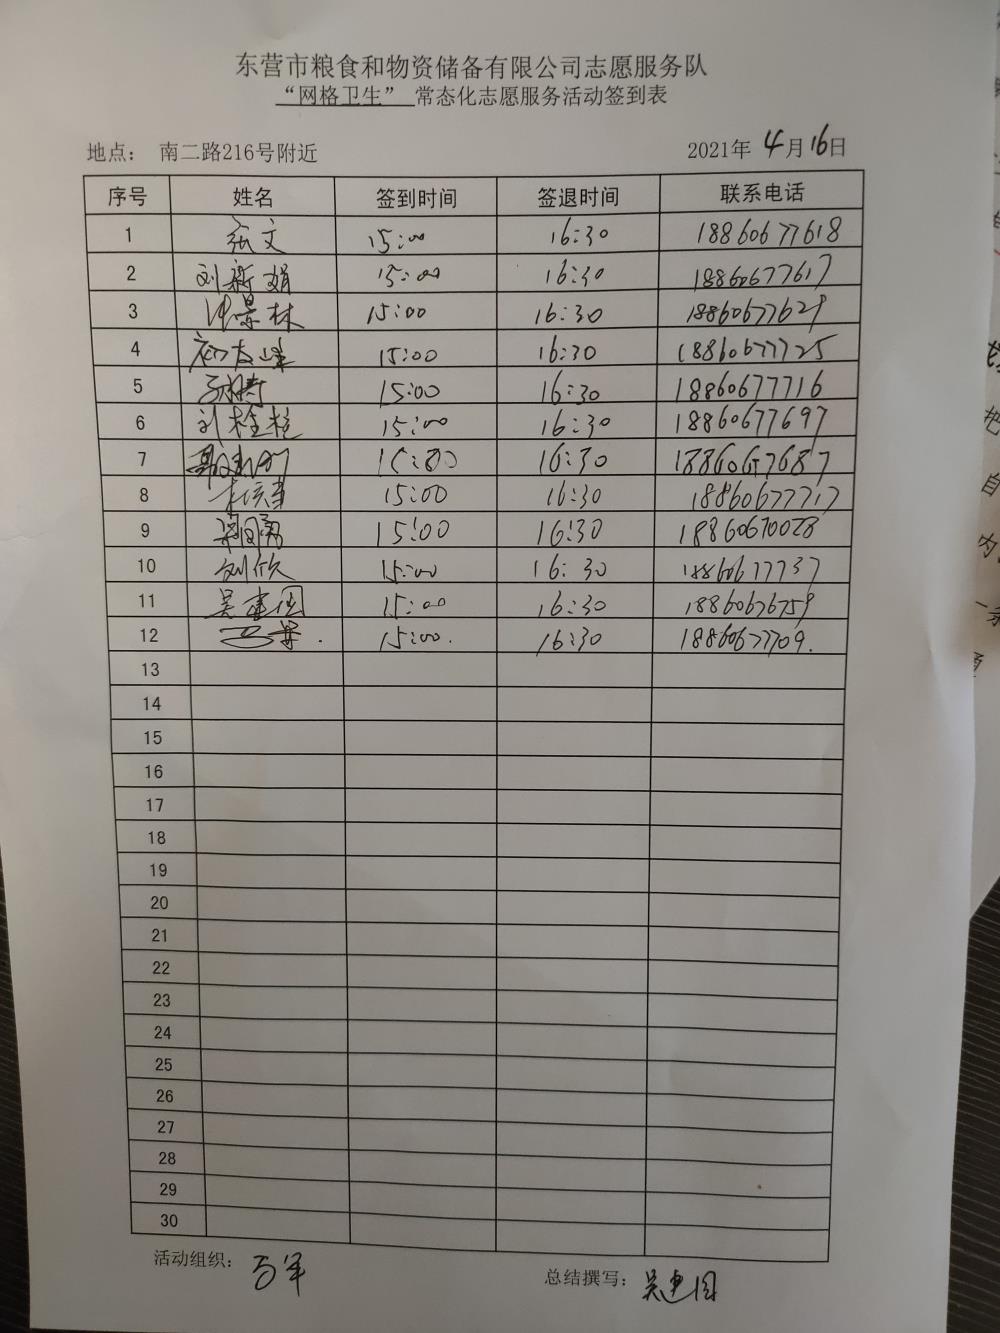 东营市粮食和物资储备有限公司志愿服务队
“网格卫生” 常态化志愿服务活动签到表
地点： 南二路216号附近 2021年 4月16日
序号 姓名 签到时间 签退时间 联系电话
1 张文 15:00 16:30 18860677618
2 刘新娟 15:00 16:30 18860677617
3 景林 15:00 16:30 18860677629
4 15:00 16:30 18860677725
5 15:00 16:30 18860677716
6 刘桂柱 15:00 16:30 18860677697
7 15:00 16:30
8 15:00 16:30 18860677717
9 15:00 16:30 18860670028
10 刘欣 15:00 16:30 18860677737
11 吴建国 15:00 16:30 18860676759
12 15:00. 16:30 18860677709.
13
14
15
16
17
18
19
20
21
22
23
24
25
26
27
28
29
30
活动组织： 总结撰写：吴建国
自
内